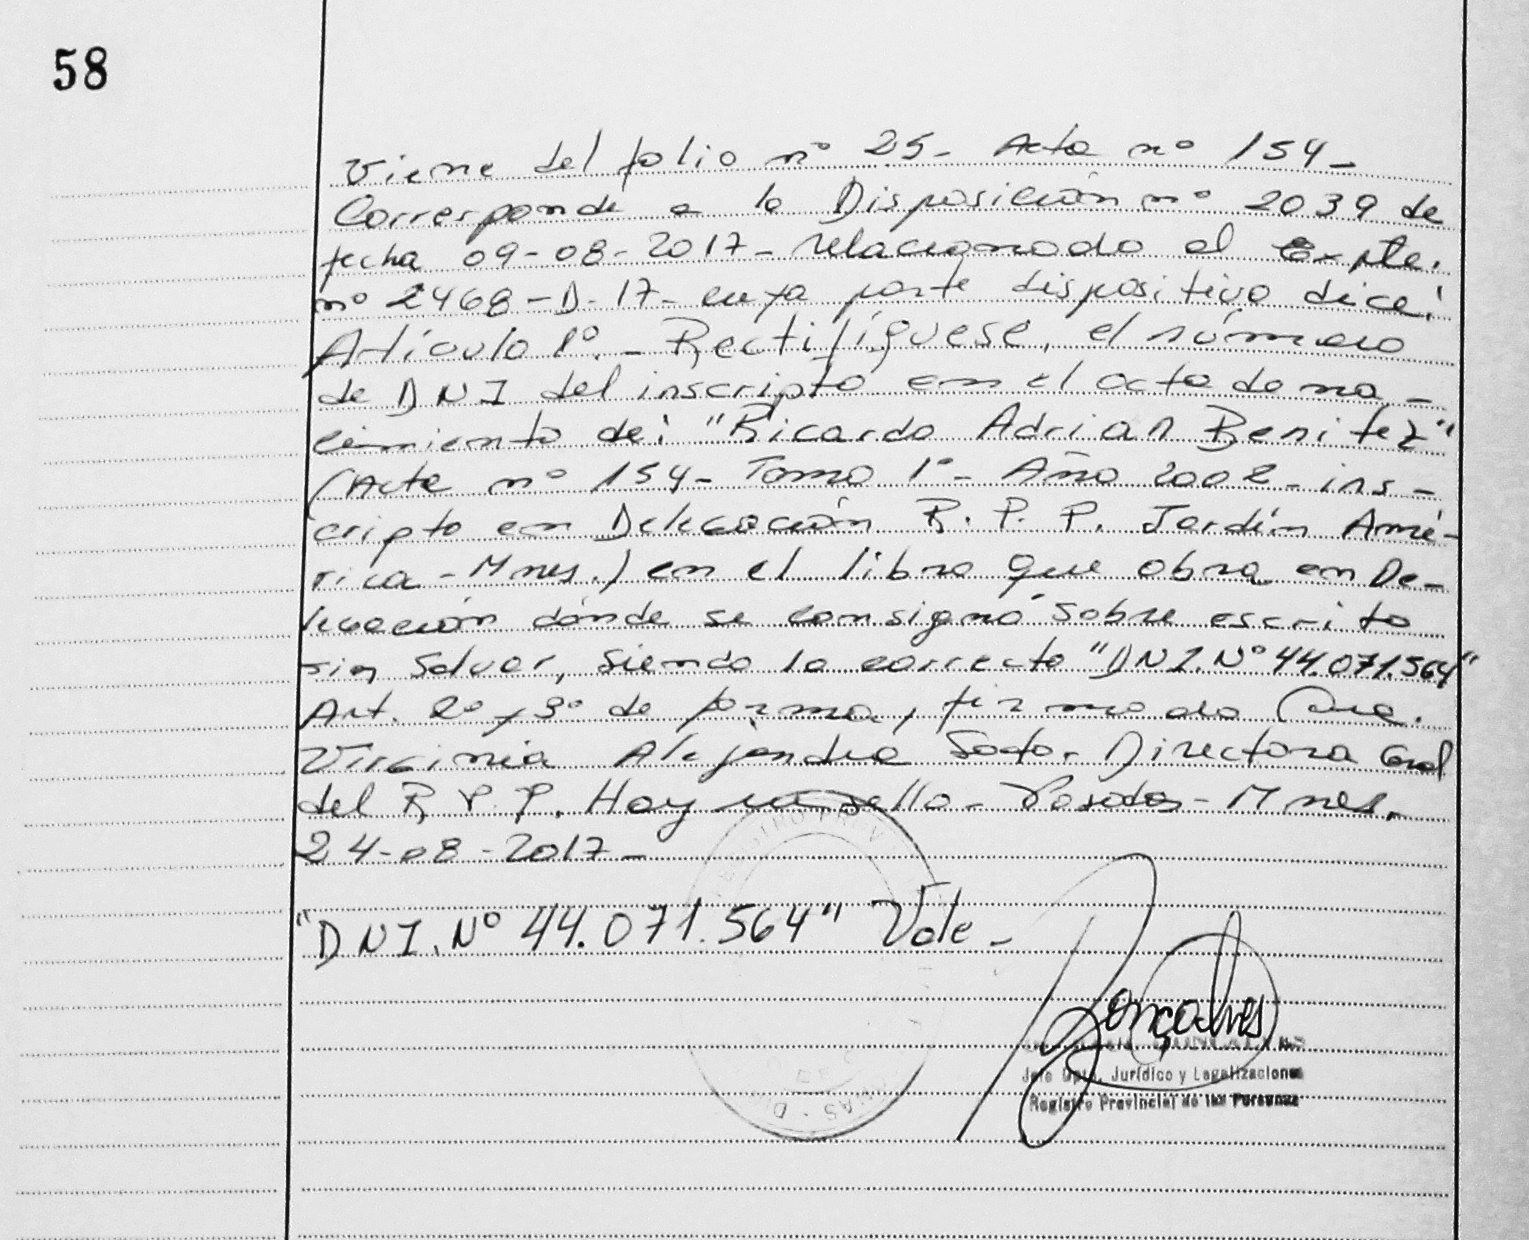 58
Viene del folio nº 25- Acta nº 154-
Corresponde a la Disposición nº 2039 de
fecha 09-08-2017- relacionado al Expte.
nº 2468-D-17- cuya parte dispositiva dice:
Artículo 1º.- Rectifíquese, el número
de DNI del inscripto en el acta de na-
cimiento de: "Ricardo Adrian Benitez"
(Acta nº 154- Tomo 1º- Año 2002- ins-
cripto en Delegación R. P. P. Jardín Amé-
rica-Mnes.) en el libro que obra en De-
legación dónde se consignó sobre escrito
sin salvar, siendo lo correcto "DNI.Nº 44.071.564"
Art. 2º y 3º de forma, firmado Dra.
Virginia Alejandra Soto. Directora Gral
del R.P.P. Hay un sello- Posadas- Mnes.
24-08-2017-
"DNI.Nº 44.071.564" Vale-
Gonçalves
Jefe Dpto. Jurídico y Legalizaciones
Registro Provincial de las Personas